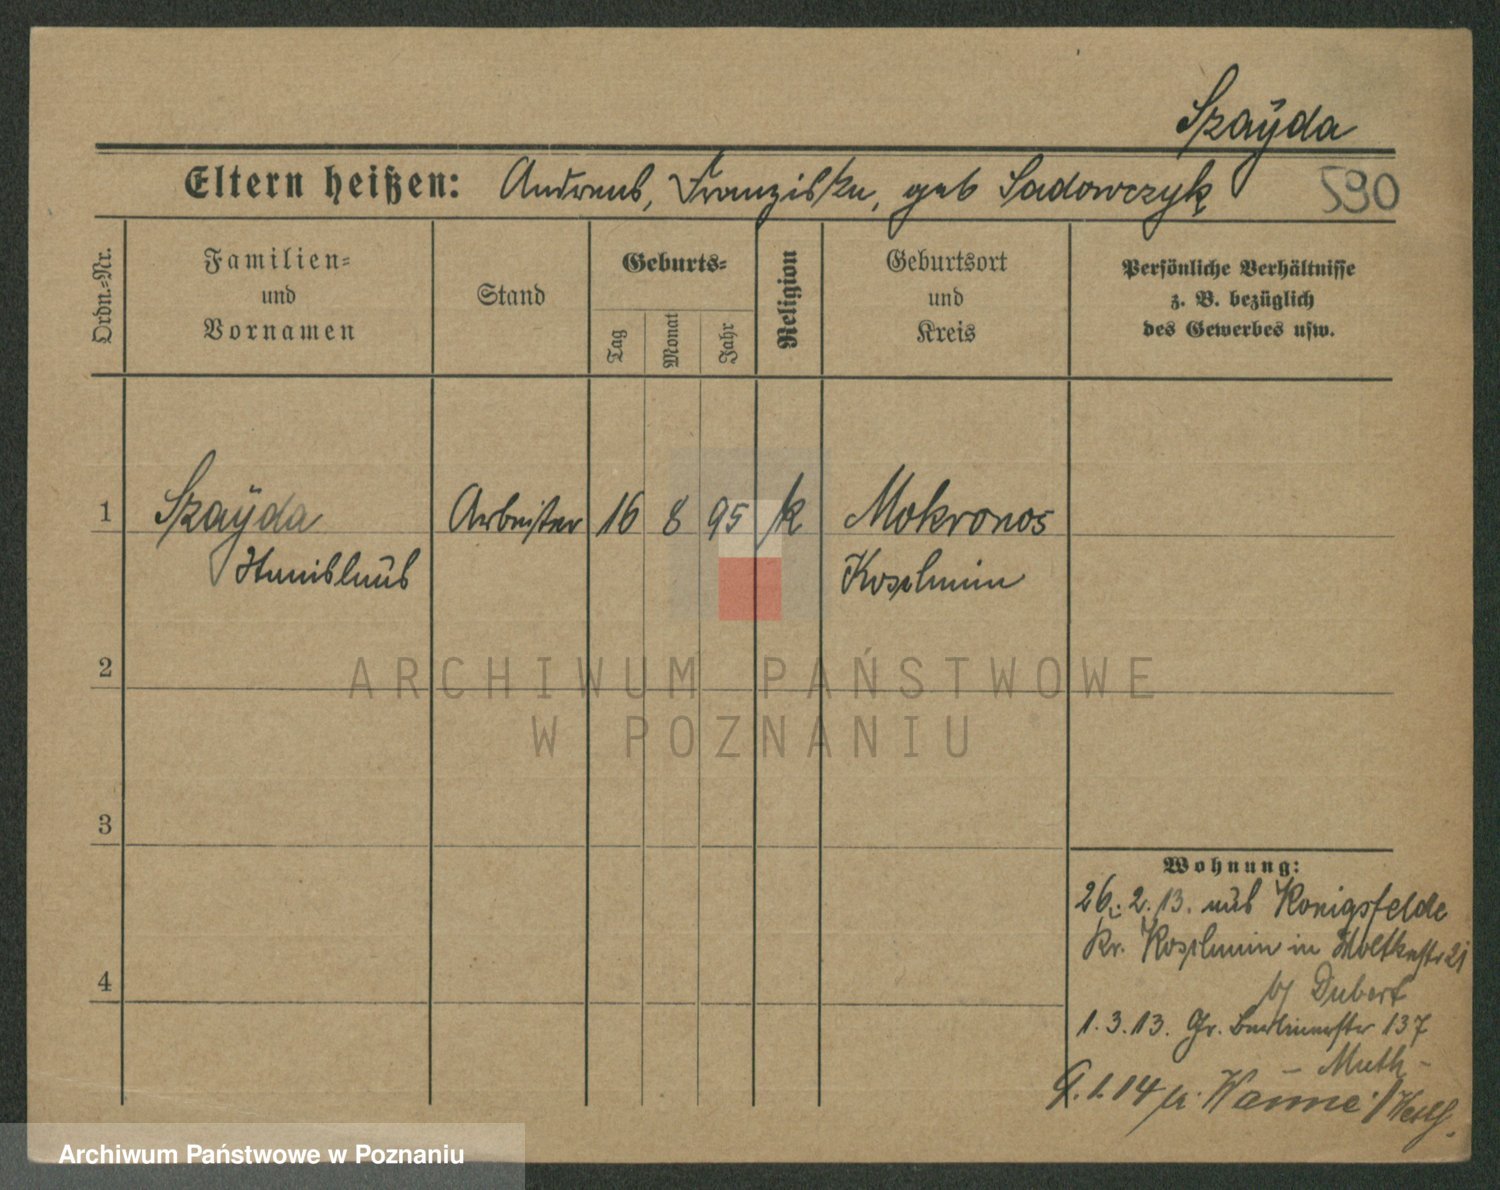 Szaÿda
Eltern heißen: Andreas, Franziska, geb Sadowczyk 590
Ordn.-Nr.
Familien-
und
Vornamen
Stand
Geburts-
Tag
Monat
Jahr
Religion
Geburtsort
und
Kreis
Persönliche Verhältnisse
z. B. bezüglich
des Gewerbes usw.
1 Szaÿda Arbeiter 16 8 95 k Mokronos
Stanislaus Koschmin
2
3
4
Wohnung:
26. 2. 13. aus Konigsfelde
Kr. Koschmin in Moltkestr 21
b/ Dubert
1. 3. 13. Gr. Berlinerstr 137
– Muth –
9. 1. 14 n. Wanne i/Westf.
ARCHIWUM PAŃSTWOWE
W POZNANIU
Archiwum Państwowe w Poznaniu